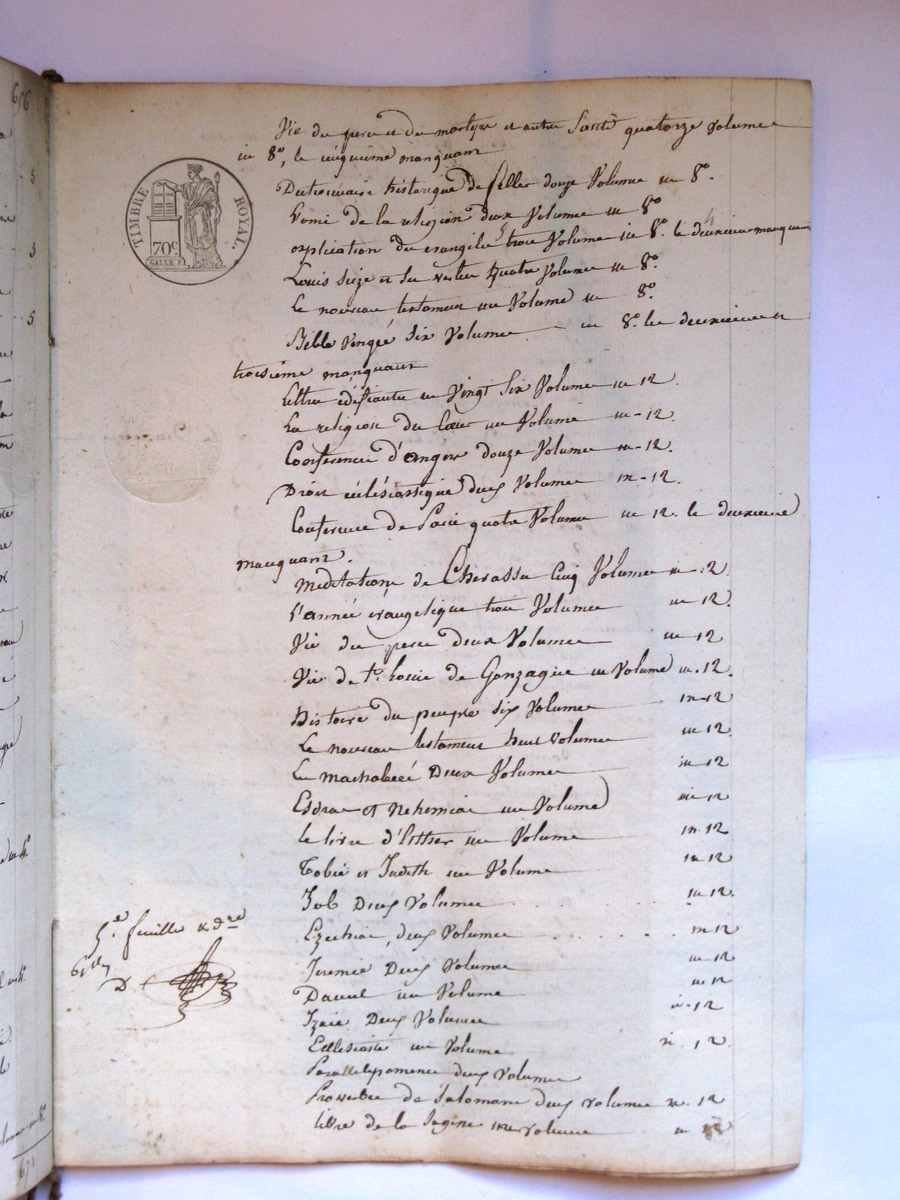 656
TIMBRE ROYAL.
70c.
Vie du pere et du martyre et autre Sainte quatorze volumes
in 8o, le cinquieme manquant
Dictionnaire historique de feller douze Volume in 8o.
L'ami de la religion deux Volume in 8o
explication du evangile trois Volume in 8o. le deuxieme manquant
Louis Seize et Ses vertus quatre Volume in 8o.
Le nouveau testament un Volume in 8o.
Bible Vengée Six Volume in 8o. le deuxieme et
troisième manquant
Lettre édifiante en Vingt Six Volume in 12.
La religion du Cœur un Volume in-12
Conference d'angers douze Volume in-12.
Droit ecclésiastique deux Volume in-12.
Conference de Paris quatre Volume in 12. le deuxieme
manquant.
Meditations de Chevassu Cinq Volume in-12
l'année évangelique trois Volume in 12.
Vie du peres Deux Volume in 12
Vie de St. Louis de Gonzague un Volume in-12.
Histoire du peuple Six Volume in-12
Le nouveau testament huit volume in 12.
Les machabeé Deux Volume in 12
Esdras et Nehemiae un Volume in 12
Le livre d'Esther un Volume in-12
Tobie et Judith un Volume in 12
Job Deux Volume in 12.
Ezechiae, deux Volume in 12
Jeremie Deux Volume in 12
Daniel un Volume in 12
Izaie Deux Volume in-12
Ecclesiaste un Volume in. 12.
Paralleipomene deux Volume
Proverbe de Salomon deux volume in 12
livre de la Sagesse un volume in 12
5e. feuille & dre